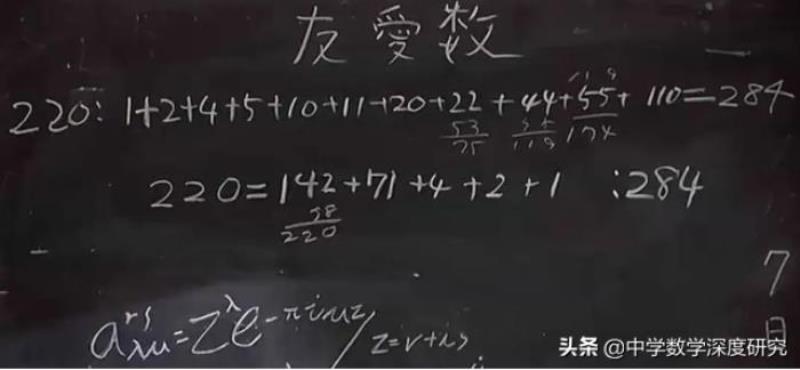 友愛数
220: 1+2+4+5+10+11+20+22+44+55+110=284
53
75
119
174
220=142+71+4+2+1 :284
78
220
7
a^{rs}_{λμ}=Z^λ e^{-πiμz}/z=r+is
头条 @中学数学深度研究